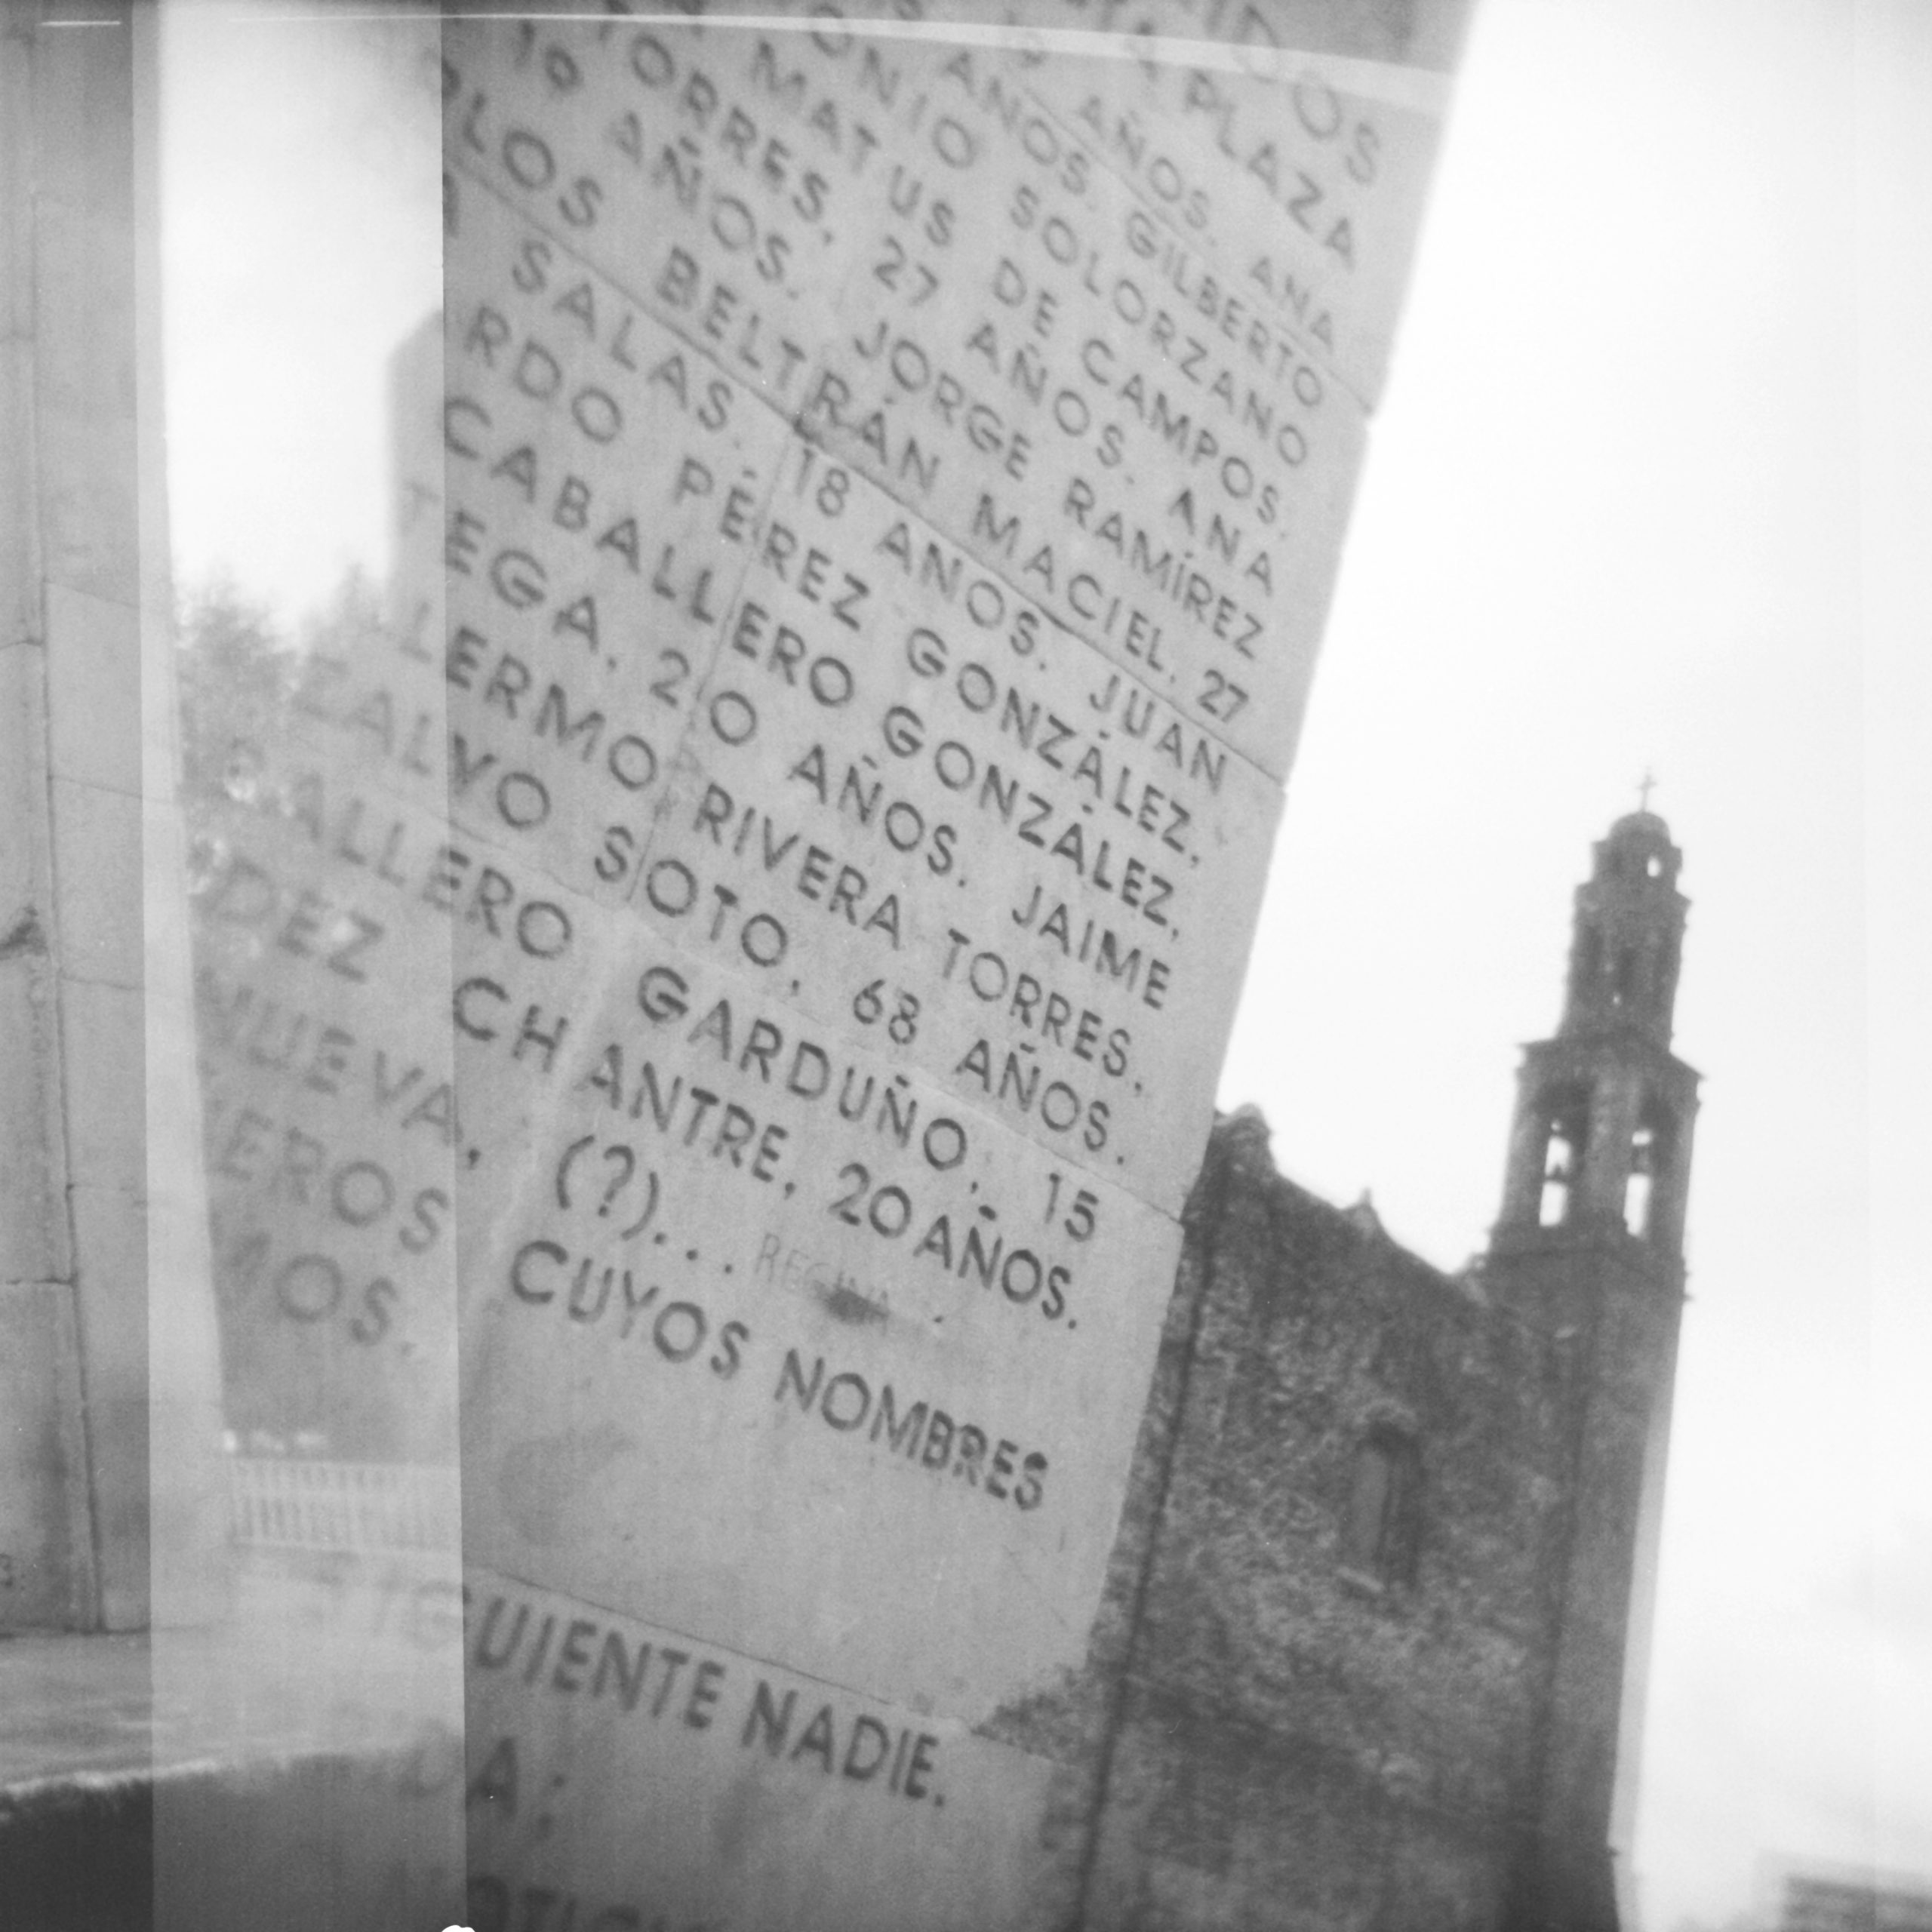 IDOS
PLAZA
AÑOS. ANA
AÑOS. GILBERTO
ONIO SOLORZANO
MATUS DE CAMPOS.
TORRES, 27 AÑOS. ANA
19 AÑOS. JORGE RAMÍREZ
LOS BELTRÁN MACIEL, 27
SALAS. 18 AÑOS. JUAN
RDO PÉREZ GONZÁLEZ,
CABALLERO GONZÁLEZ,
TEGA, 20 AÑOS. JAIME
LERMO RIVERA TORRES,
ZALVO SOTO, 68 AÑOS.
ALLERO GARDUÑO, 15
DEZ CHANTRE, 20 AÑOS.
NUEVA, (?)... REGINA
EROS CUYOS NOMBRES
MOS.
IGUIENTE NADIE.
A;